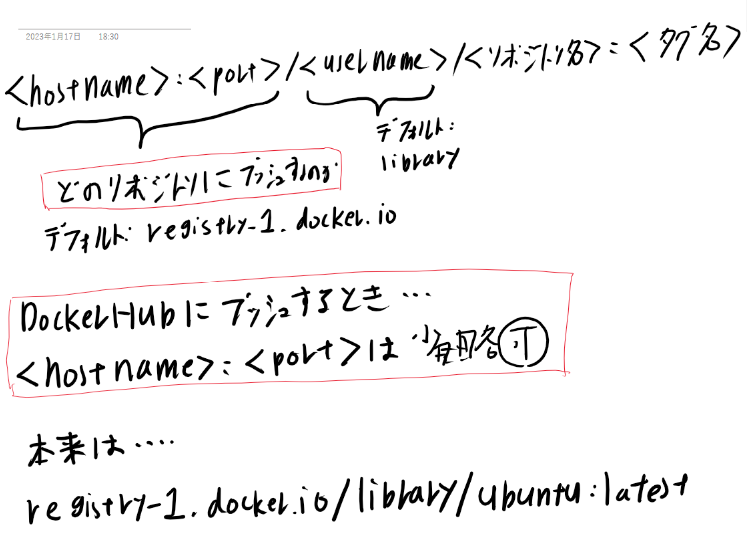 2023年1月17日 18:30
<hostname>:<port>/<username>/<リポジトリ名>:<タグ名>
デフォルト:
library
どのリポジトリにプッシュするのか
デフォルト: registry-1.docker.io
DockerHubにプッシュするとき…
<hostname>:<port>は省略可
本来は....
registry-1.docker.io/library/ubuntu:latest